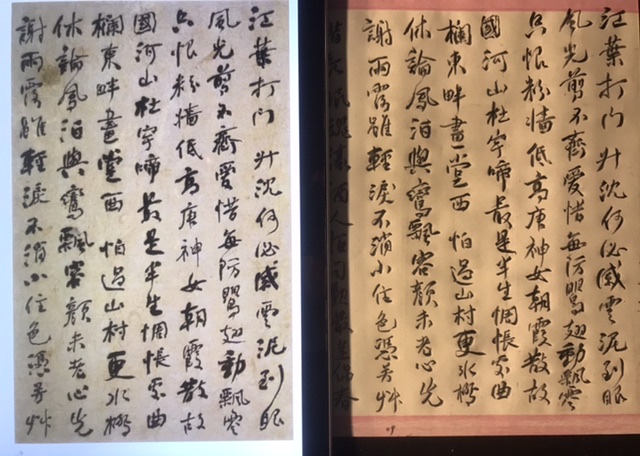 江葉打门升沈何必感雲泥到眼
風光剪不齊愛惜每防鶯翅動飄零
只恨粉墻低高唐神女朝霞散故
國河山杜宇啼最是半生惆悵處曲
欄東畔畫堂西怕過山村更水橋
休論鳳泊與鸞飄容顏未老心先
謝雨露雖輕淚不消小住色憑芳艸
江葉打门升沈何必感雲泥到眼
風光剪不齊愛惜每防鶯翅動飄零
只恨粉墻低高唐神女朝霞散故
國河山杜宇啼最是半生惆悵處曲
欄東畔畫堂西怕過山村更水橋
休論鳳泊與鸞飄容顏未老心先
謝雨露雖輕淚不消小住色憑芳艸